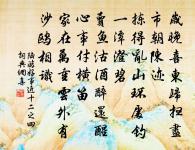 歲晚喜東歸掃盡
市朝陳迹
揀得亂山環處釣
一潭澄碧
賣魚沽酒醉還醒
心事付橫笛
家在萬重雲外有
沙鷗相識
陸游好事近十二之四
詞典網集